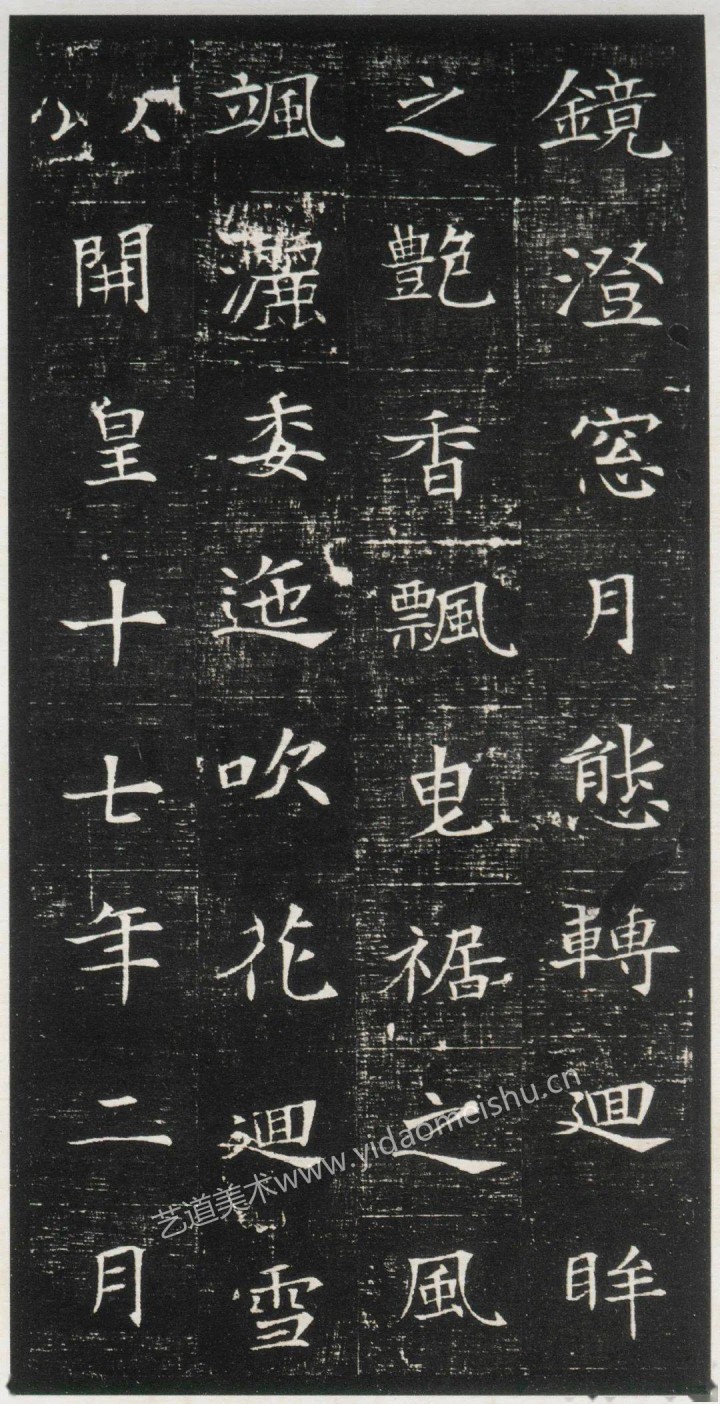 鏡澄窓月態轉迴眸
之艶香飄曳裾之風
颯灑委迤吹花迴雪
以開皇十七年二月
艺道美术www.yidaomeishu.cn